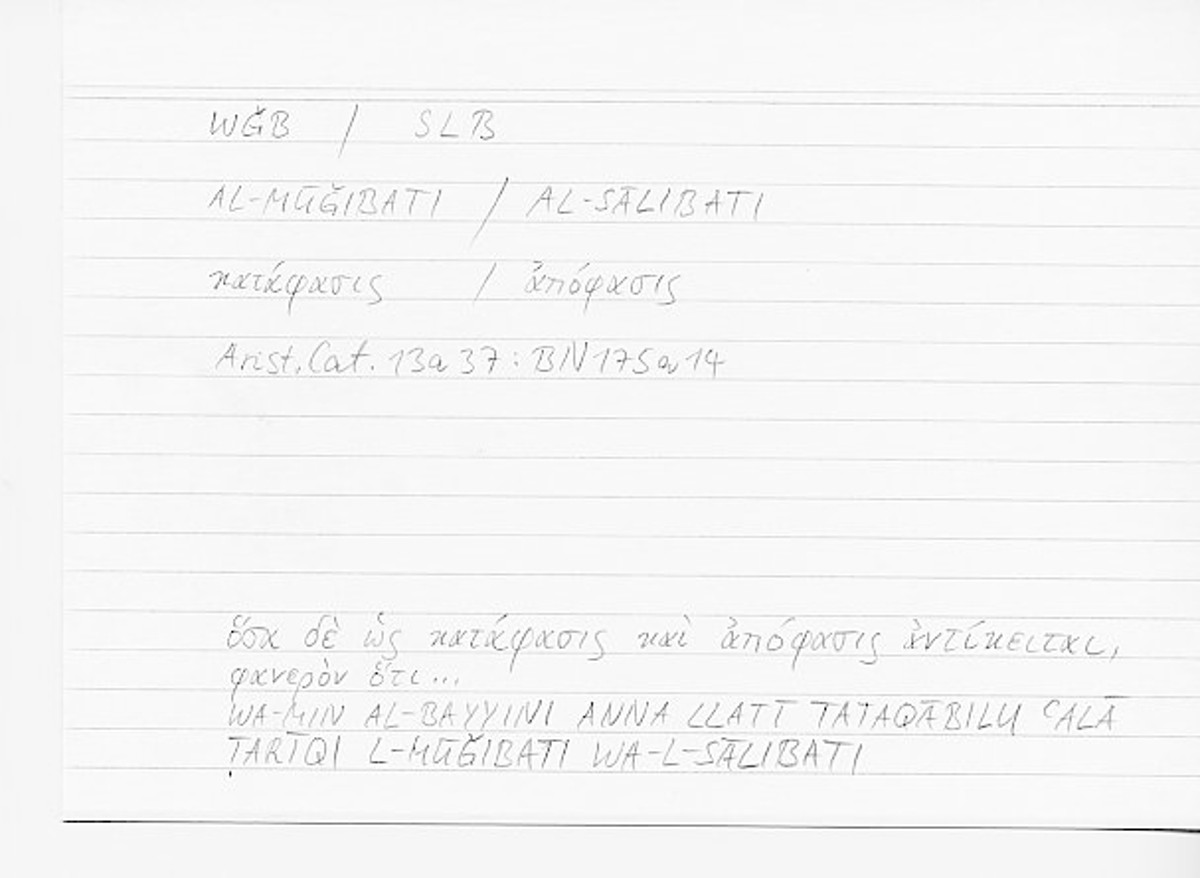 WĞB / SLB
AL-MŪĞIBATI / AL-SĀLIBATI
κατάφασις / ἀπόφασις
Arist. Cat. 13a37 : BN 175a14
ὅσα δὲ ὡς κατάφασις καὶ ἀπόφασις ἀντίκειται,
φανερὸν ὅτι...
WA-MIN AL-BAYYINI ANNA LLATĪ TATAQĀBILU ʿALĀ
ṬARĪQI L-MŪĞIBATI WA-L-SĀLIBATI